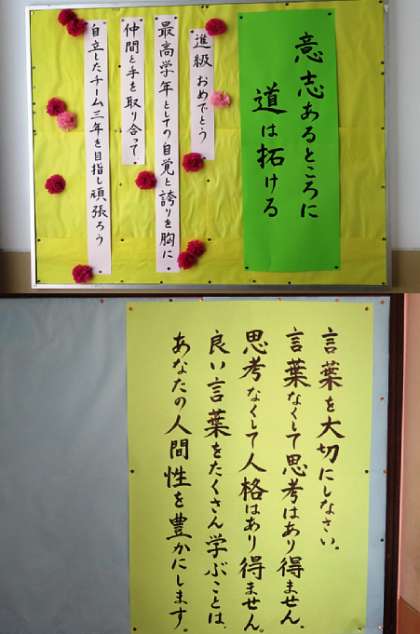 意志あるところに
道は拓ける
進級 おめでとう
最高学年としての自覚と誇りを胸に
仲間と手を取り合って、
自立したチーム三年を目指し頑張ろう
言葉を大切にしなさい。
言葉なくして思考はあり得ません。
思考なくして人格はあり得ません。
良い言葉をたくさん学ぶことは、
あなたの人間性を豊かにします。